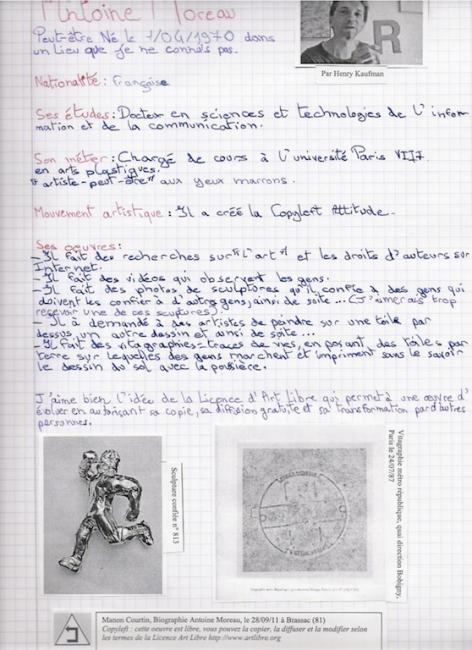 Antoine Moreau
Peut-être Né le 1/04/1970 dans
un lieu que je ne connais pas.
Par Henry Kaufman
R
Nationalité : Française
Ses études : Docteur en sciences et technologies de l'infor-
mation et de la communication.
Son métier : Chargé de cours à l'université Paris VIII
en arts plastiques.
"artiste-peut-être" aux yeux marrons.
Mouvement artistique : Il a créé la Copyleft Attitude.
Ses oeuvres :
- Il fait des recherches sur "L'art" et les droits d'auteurs sur
Internet.
- Il fait des vidéos qui observent les gens.
- Il fait des photos de sculptures qu'il confie à des gens qui
doivent les confier à d'autres gens, ainsi de suite ... (J'aimerais trop
recevoir une de ces sculptures).
- Il à demandé à des artistes de peindre sur une toile par
dessus un autre dessin et ainsi de suite ...
- Il fait des vitagraphies-traces de vies, en posant des toiles par
terre sur lequelles des gens marchent et impriment sans le savoir
le dessin du sol avec la poussière.
J'aime bien l'idée de la Licence d'Art Libre qui permet à une oeuvre d'
évoluer en autorisant sa copie, sa diffusion gratuite et sa transformation par d'autres
personnes.
Sculpture confiée n° 813
Vitagraphie métro république, quai direction Bobigny,
Paris le 24/07/87
Manon Courtin, Biographie Antoine Moreau, le 28/09/11 à Brassac (81)
Copyleft : cette oeuvre est libre, vous pouvez la copier, la diffuser et la modifier selon
les termes de la Licence Art Libre http://www.artlibre.org